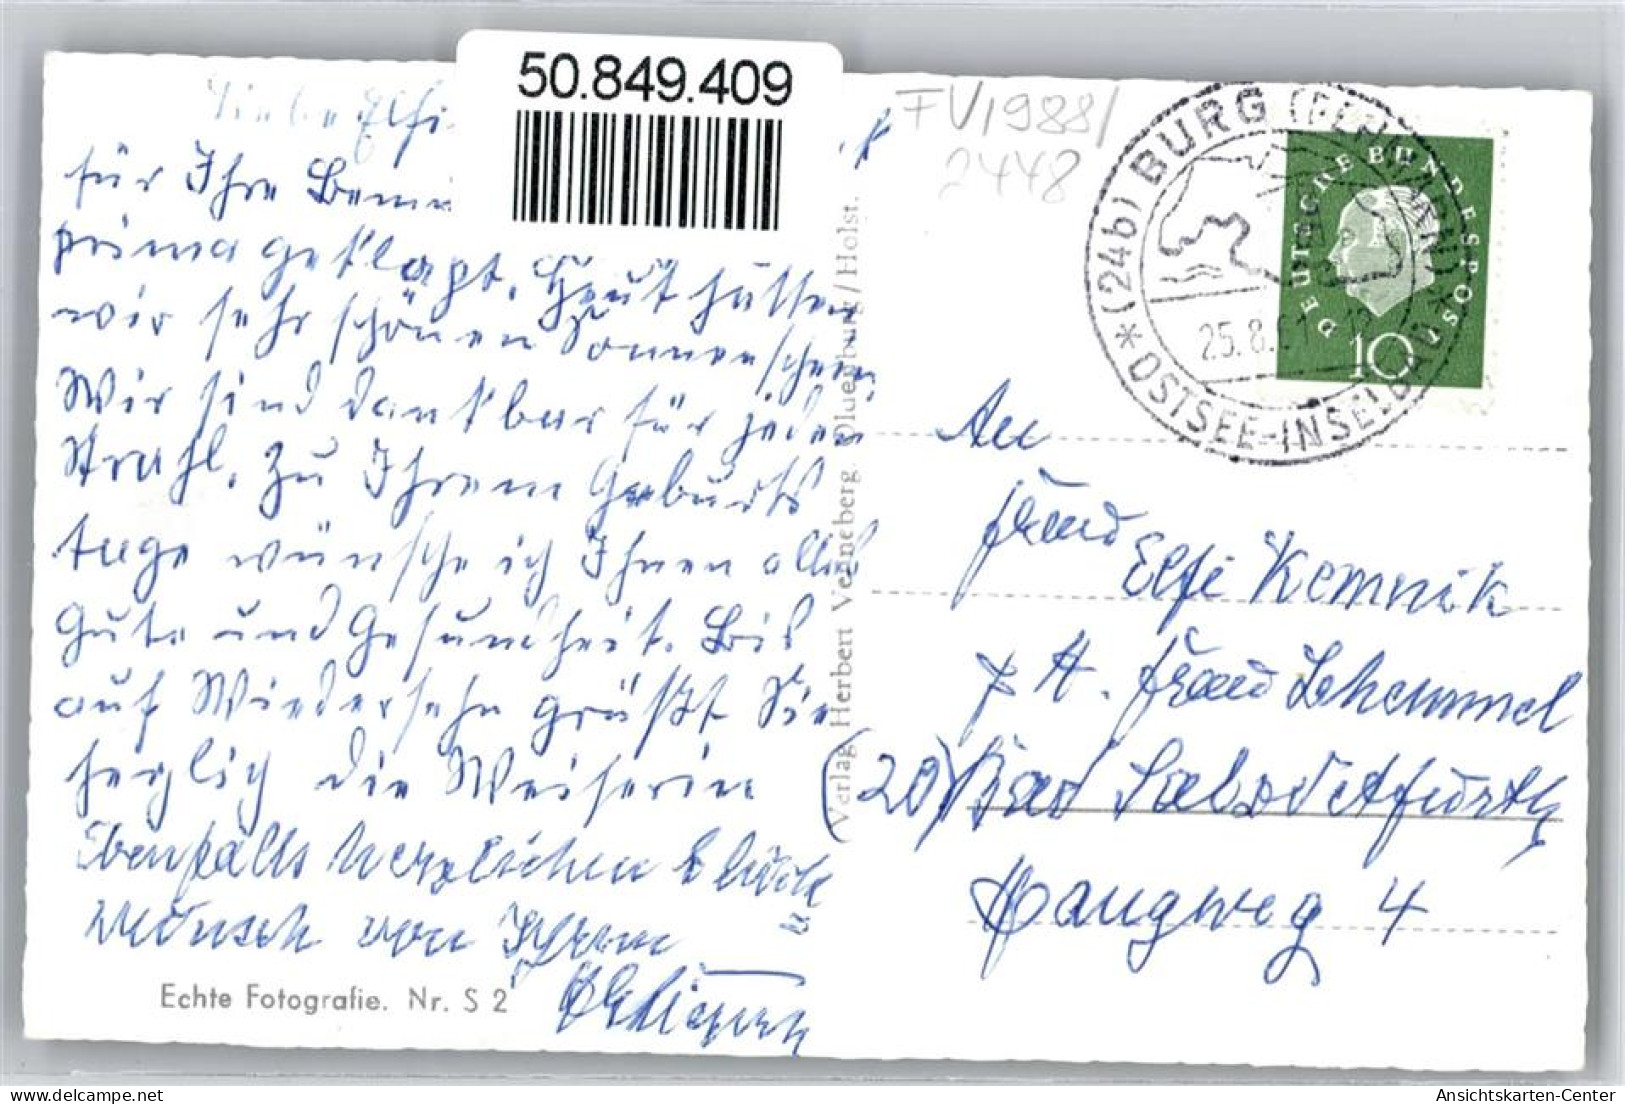 50.849.409
Liebe Elfi
für Ihre Bemü
prima geklappt. Heut hatten
wir sehr schönen Sonnenschein
Wir sind dankbar für jeden
Strahl. Zu Ihrem Geburts
tage wünsche ich Ihnen alles
Gute und Gesundheit. Bis
auf Wiedersehn grüßt Sie
herzlich die
Ebenfalls herzlichen Glück
wunsch von Ihrem
Echte Fotografie. Nr. S 2
Verlag Herbert Venneberg, Oldenburg/Holst.
FV1988/
2448
(24b) BURG (FEHMARN)
* OSTSEE-INSELBAD *
25.8.61
DEUTSCHE BUNDESPOST
10
An
Elfi Kemnik
(20) Bad Salzdetfurth
4
Ansichtskarten-Center